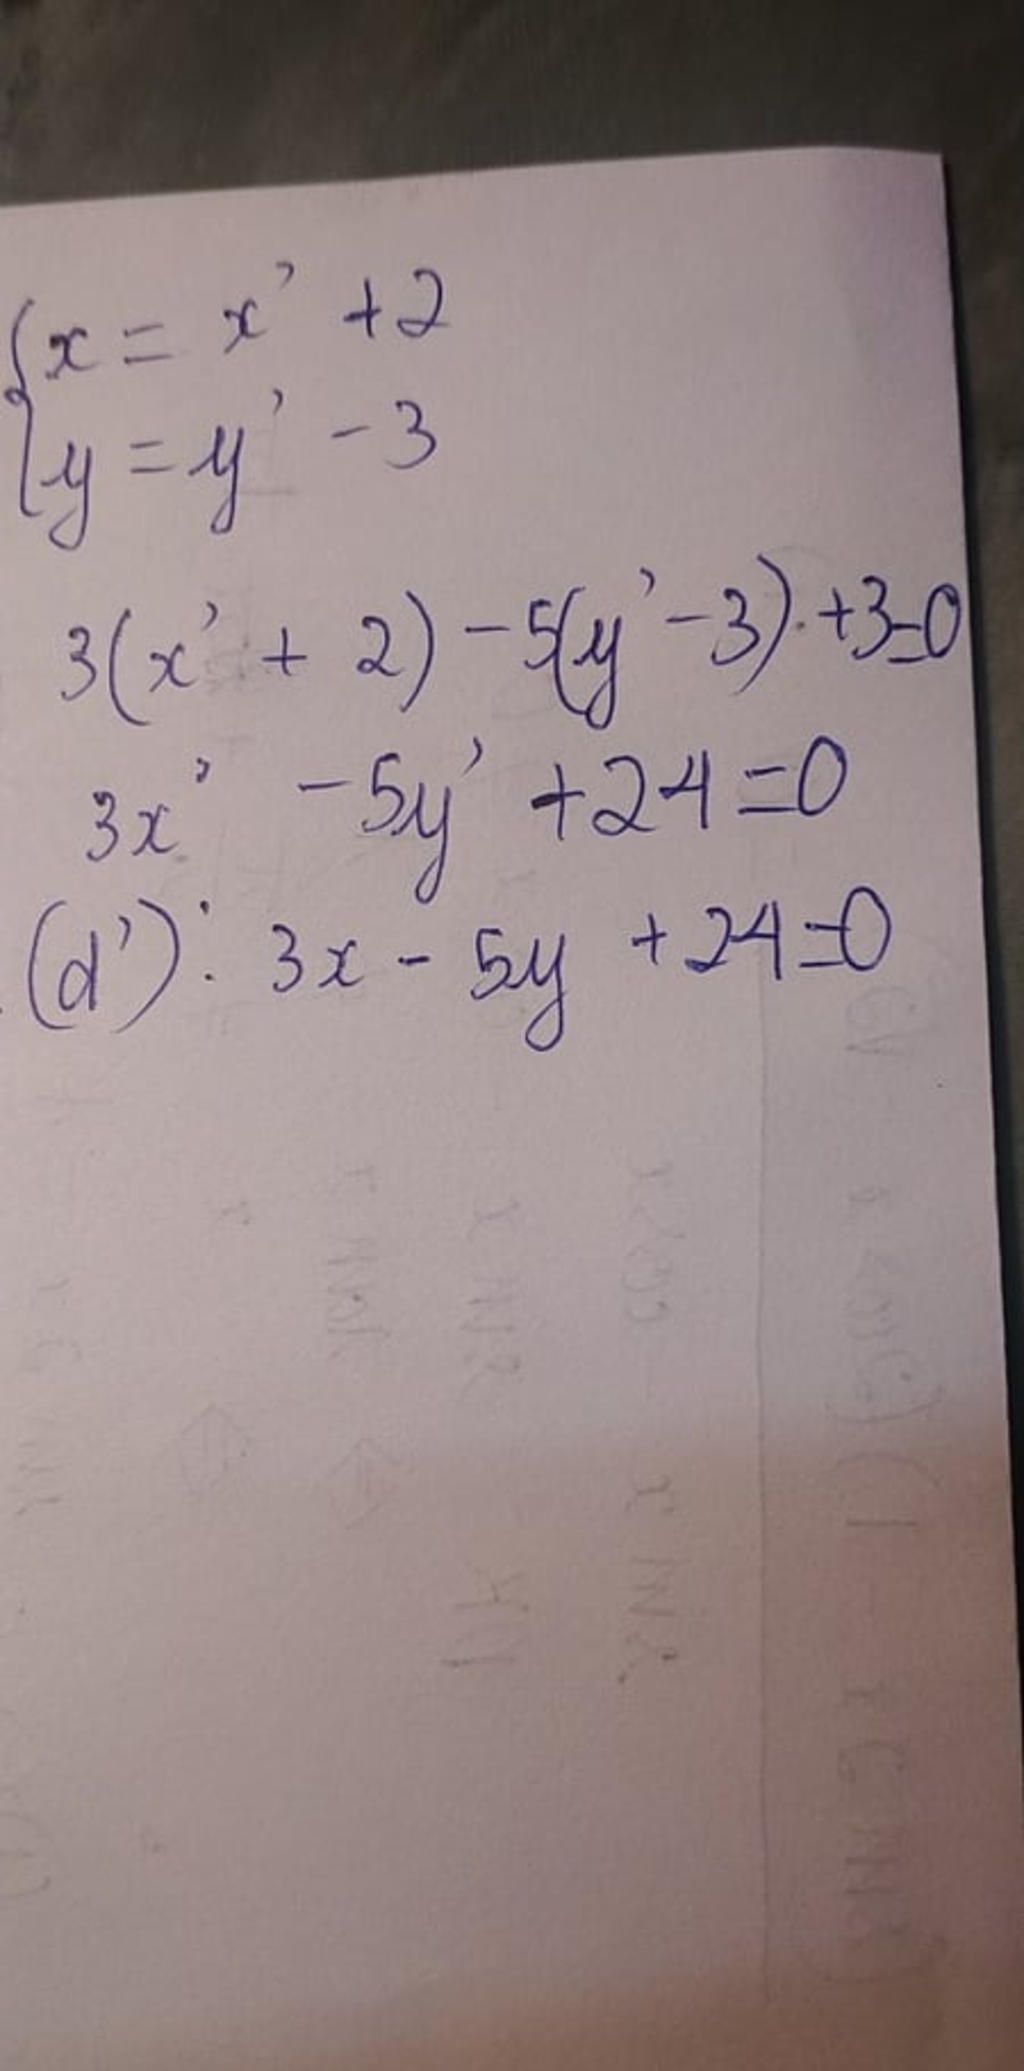 {x = x' + 2
{y = y' - 3
3(x' + 2) - 5(y' - 3) + 3 = 0
3x' - 5y' + 24 = 0
(d'): 3x - 5y + 24 = 0